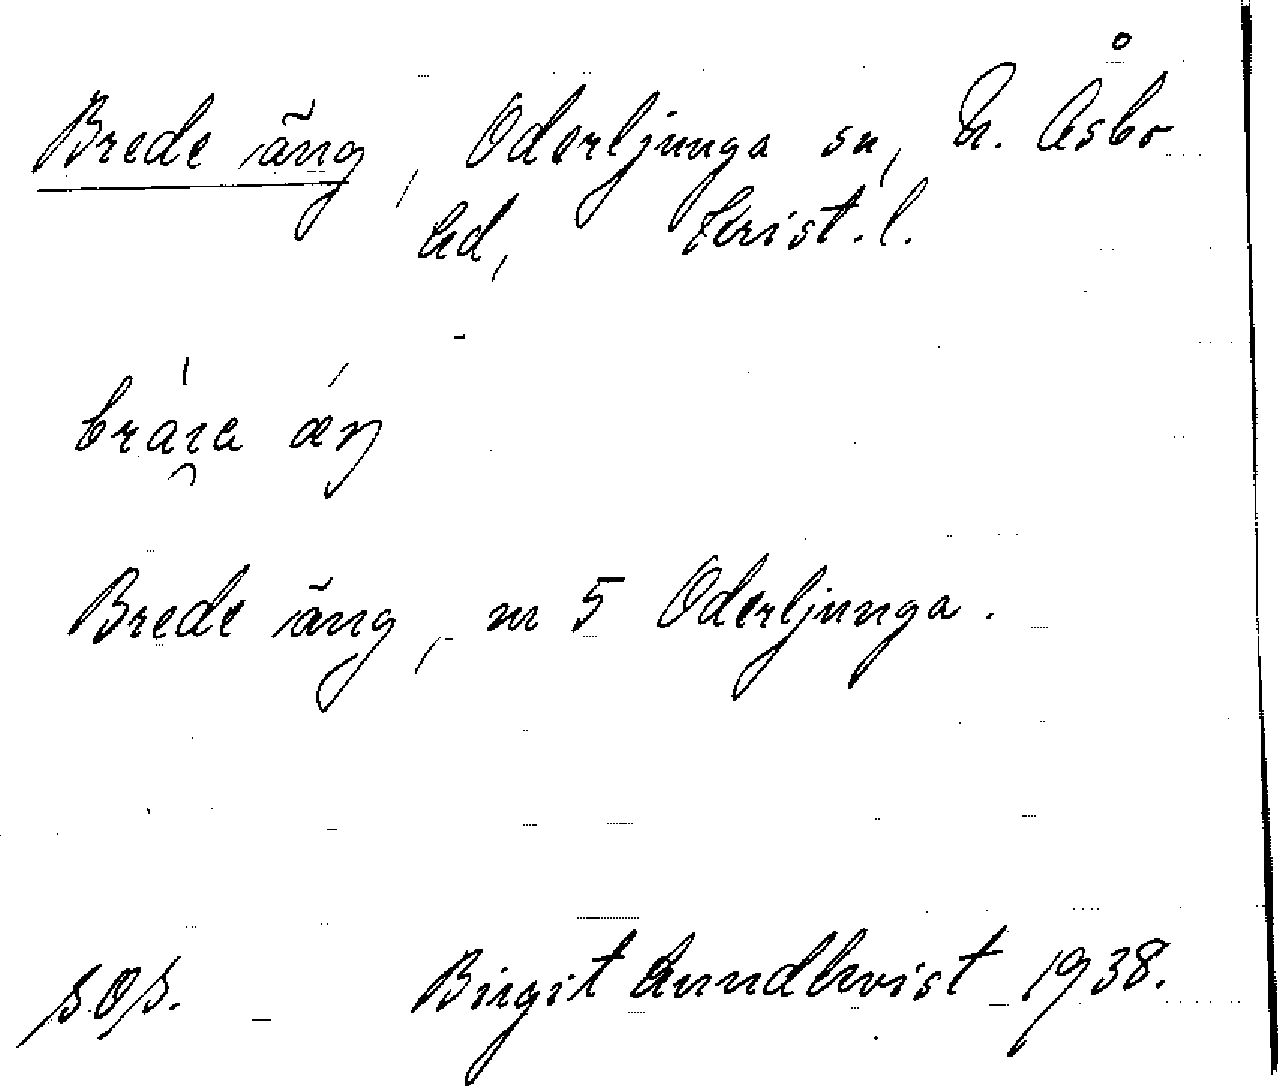 Brede äng, Oderljunga sn, N. Åsbo
hd, Krist. l.
Brede äng, nr 5 Oderljunga.
Birgit Lundkvist 1938.